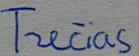 Trečias